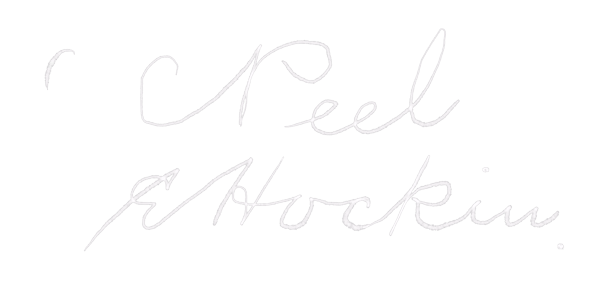 C Peel
E Hockin.